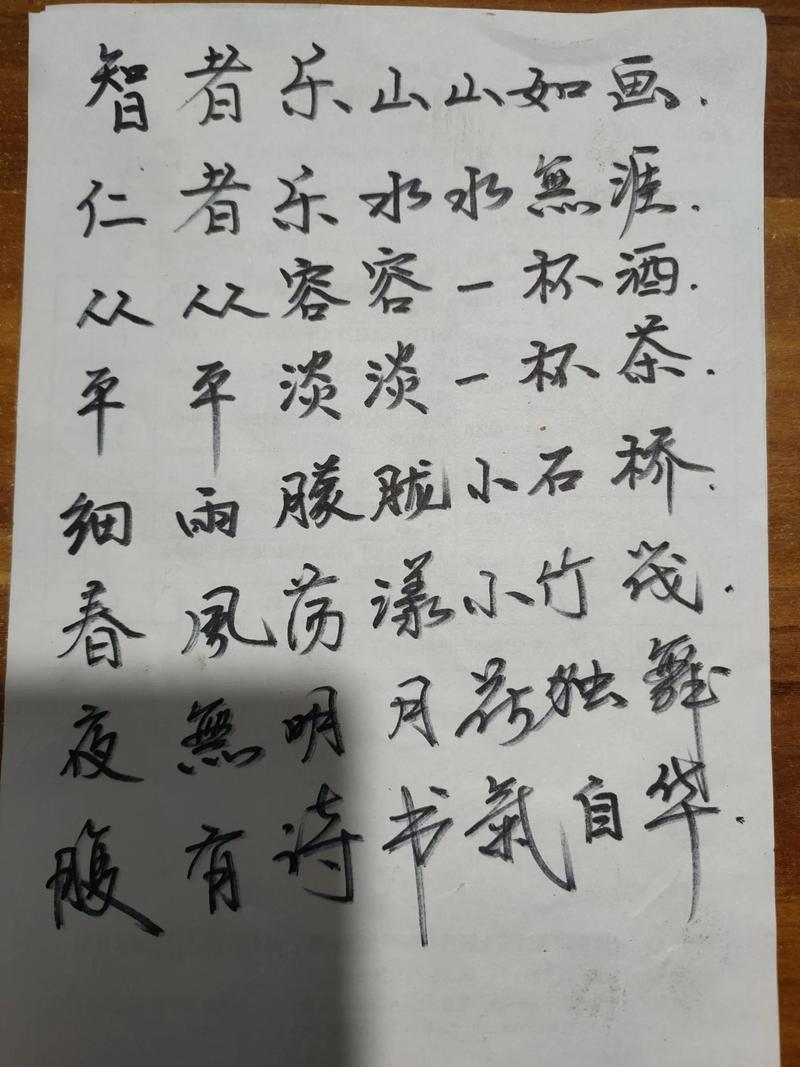 智者乐山山如画.
仁者乐水水無涯.
从从容容一杯酒.
平平淡淡一杯茶.
细雨朦胧小石桥.
春風荡漾小竹筏.
夜無明月花独舞
腹有诗书氣自华.